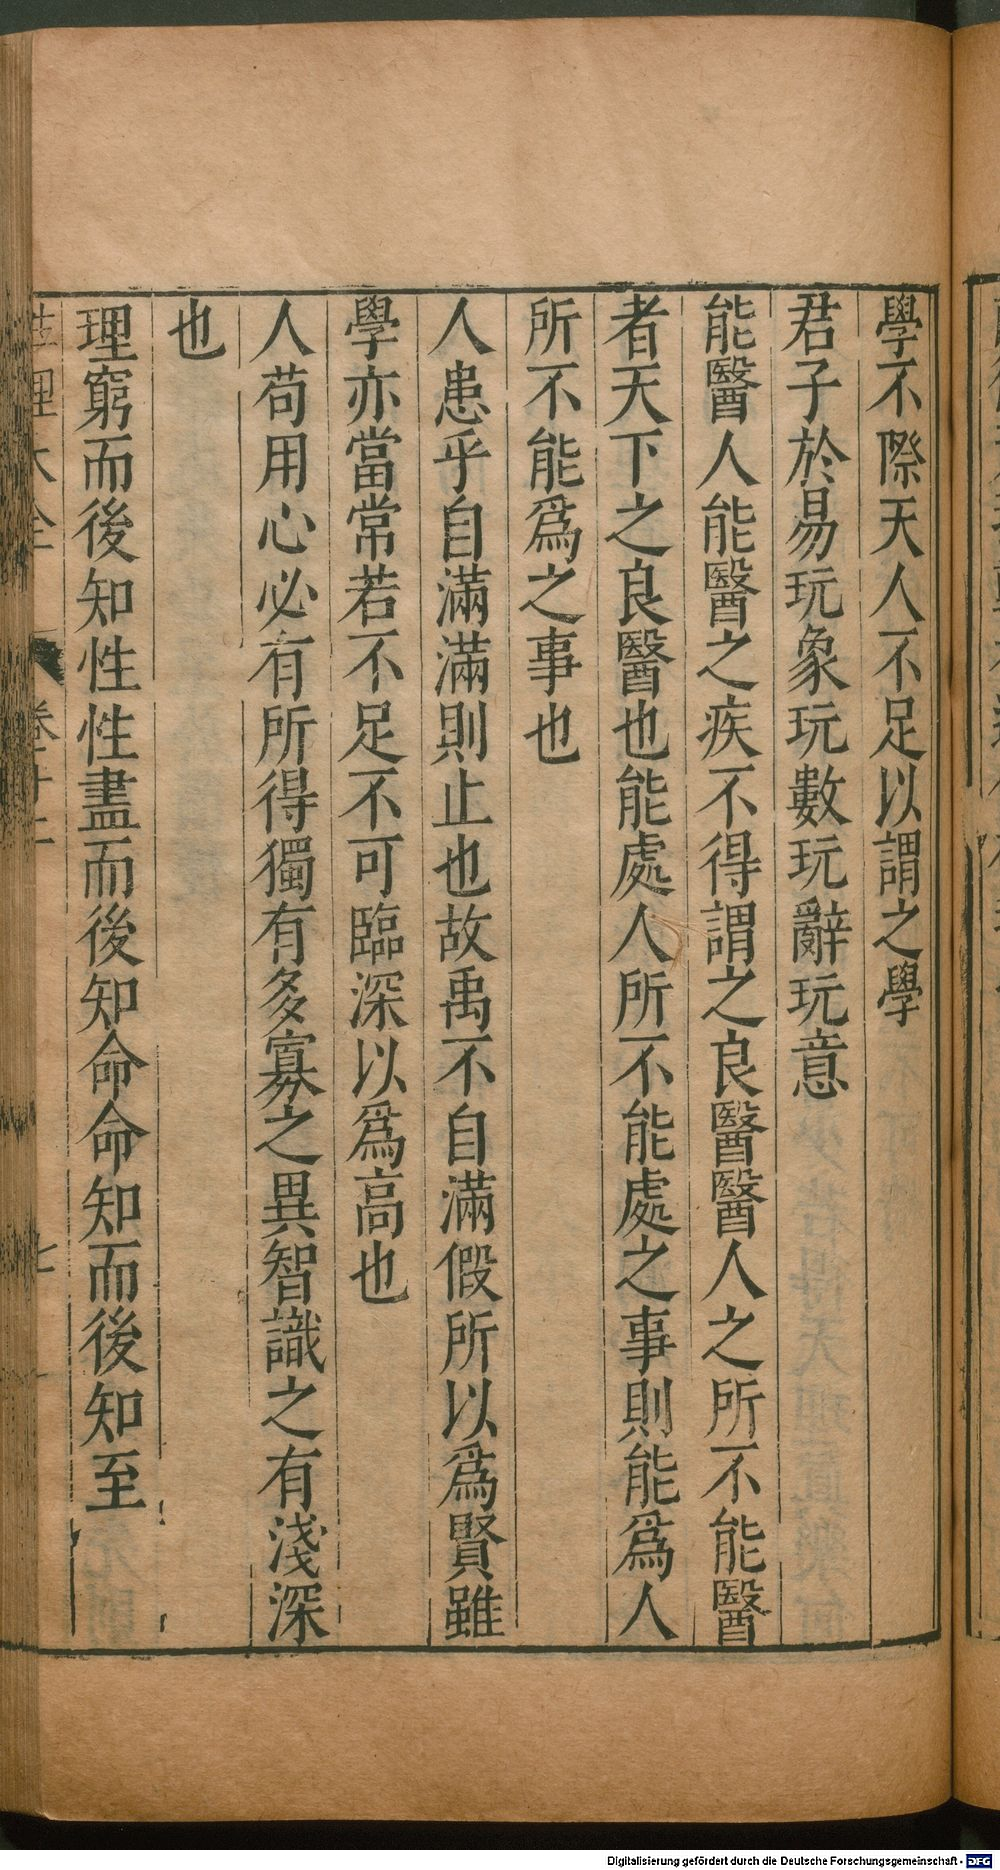 學不際天人不足以謂之學
君子於易玩象玩數玩辭玩意
能醫人能醫之疾不得謂之良醫醫人之所不能醫
者天下之良醫也能處人所不能處之事則能爲人
所不能爲之事也
人患乎自滿滿則止也故禹不自滿假所以爲賢雖
學亦當常若不足不可臨深以爲高也
人苟用心必有所得獨有多寡之異智識之有淺深
也
理窮而後知性性盡而後知命命知而後知至
性理大全 卷十二 七
Digitalisierung gefördert durch die Deutsche Forschungsgemeinschaft - DFG